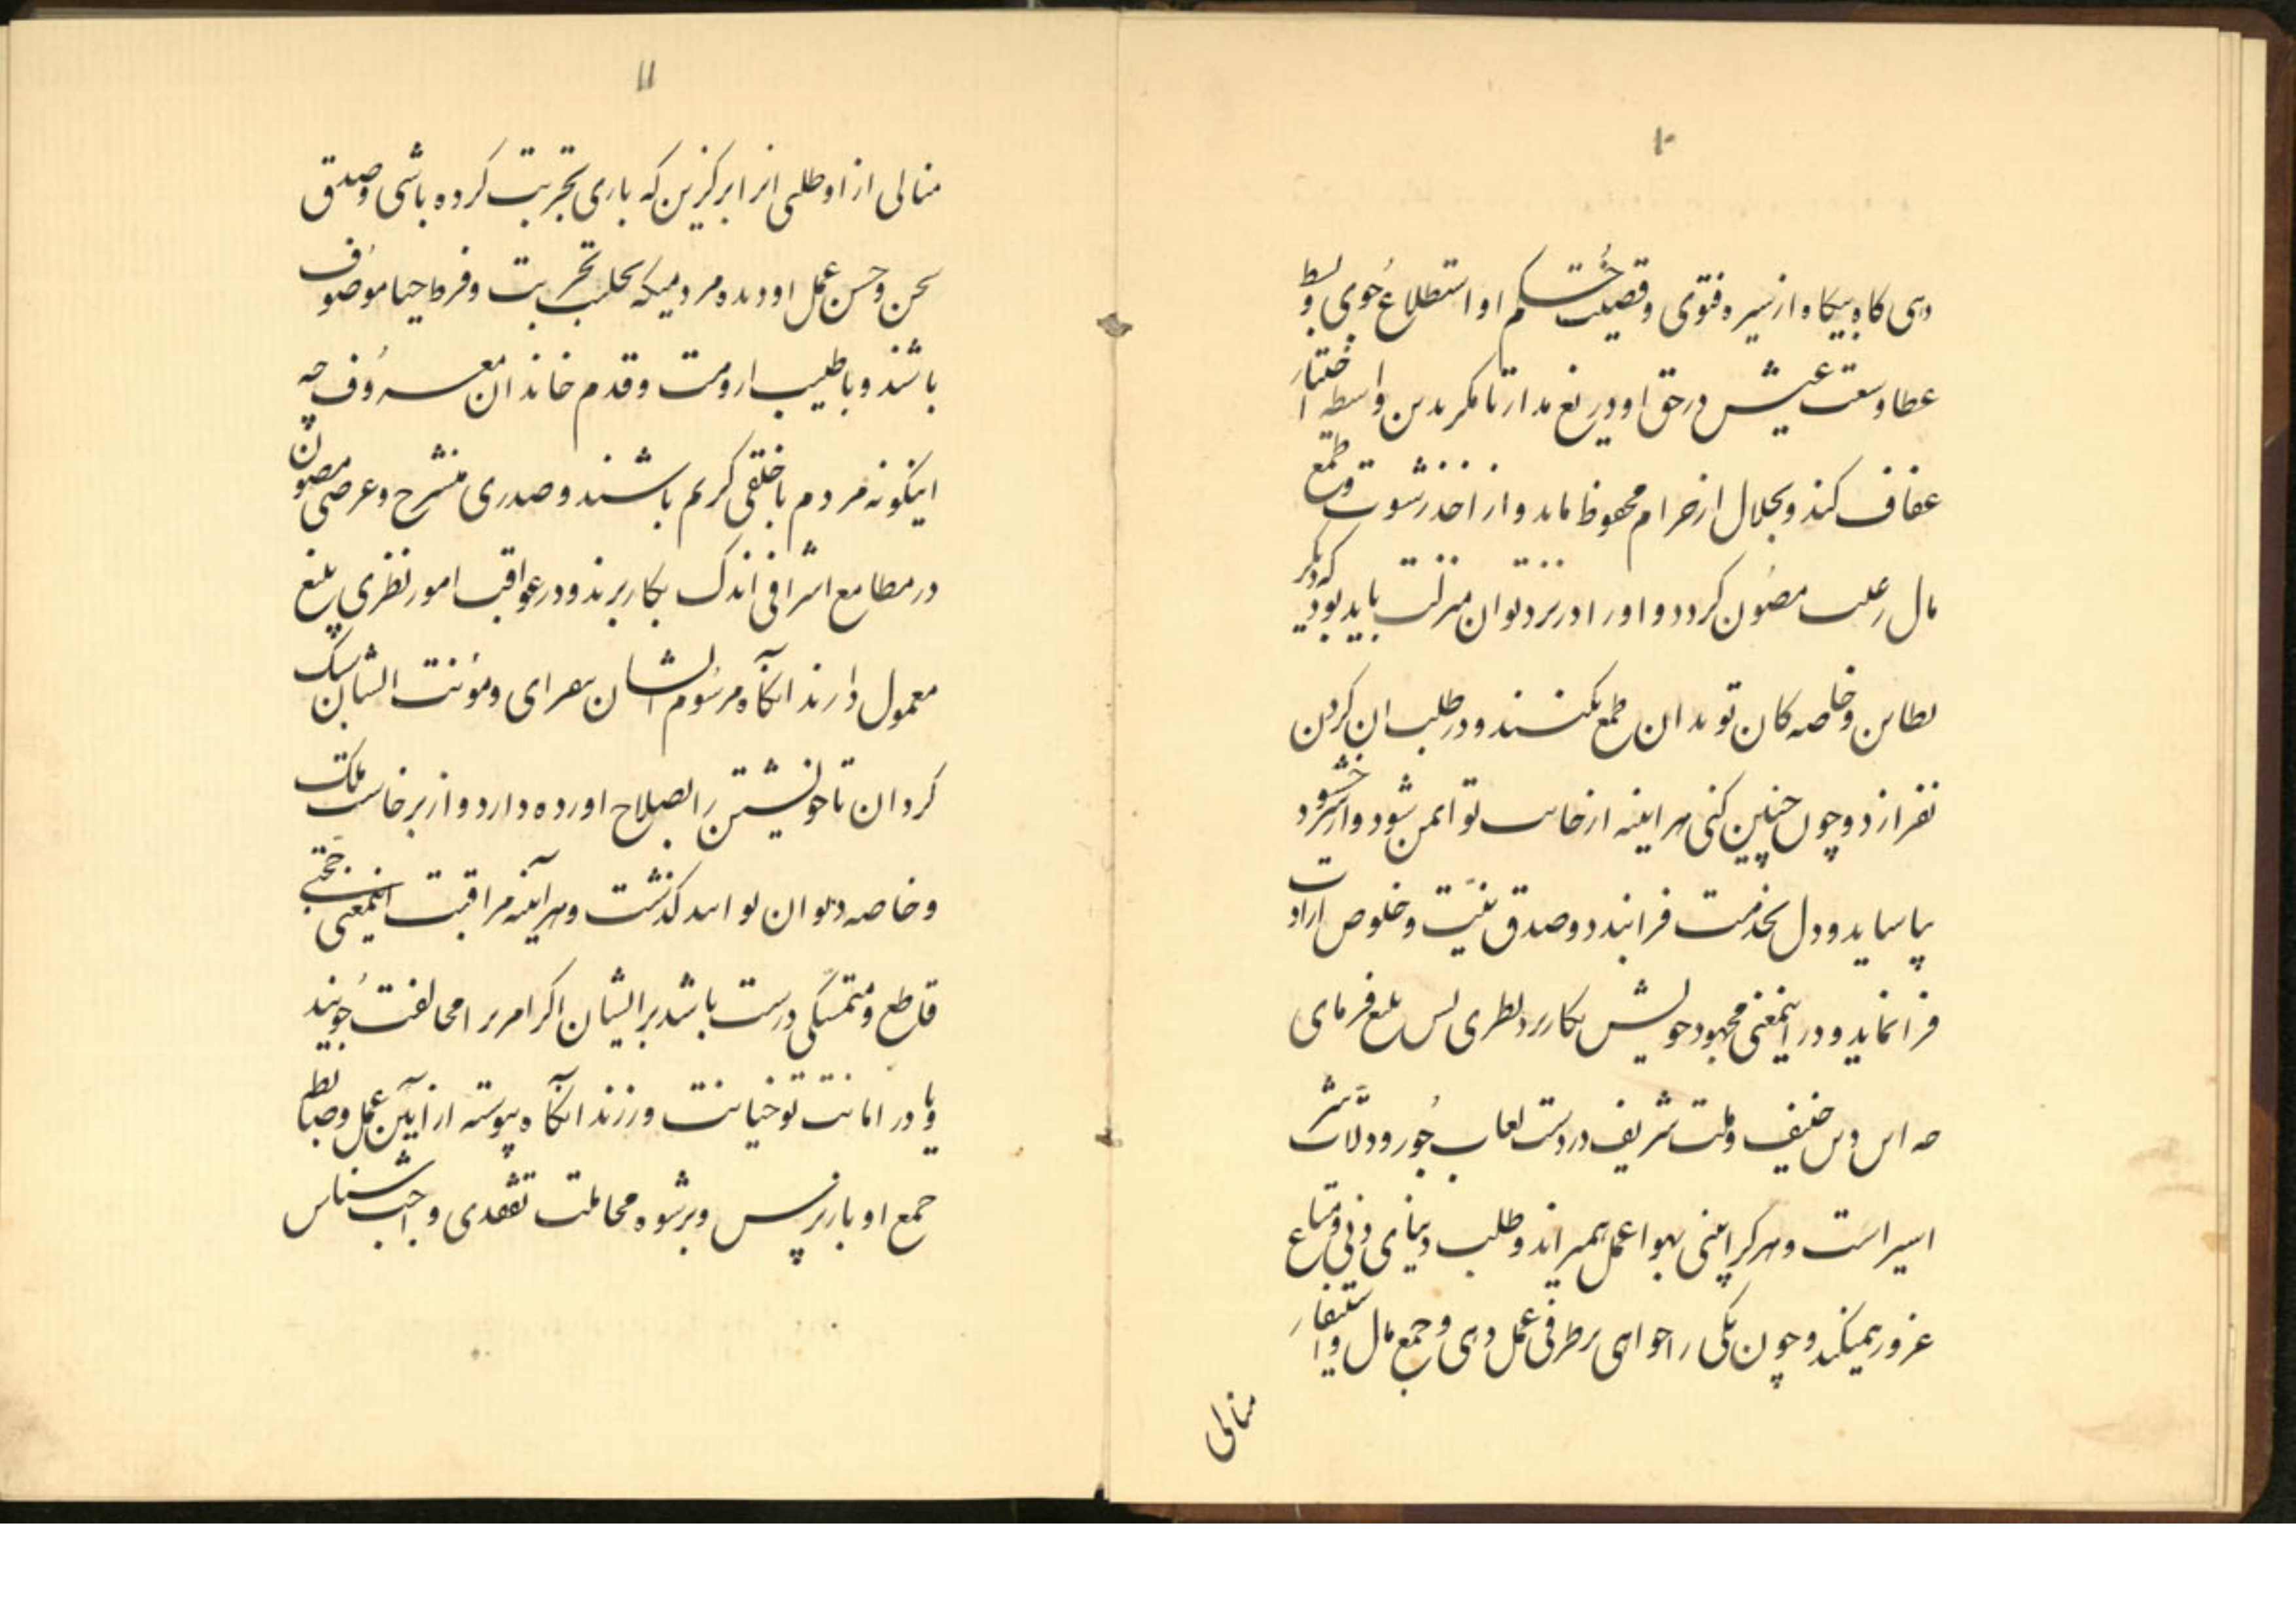 ۱۰
دهی کاه بیکاه از سیره فتوی و قصیت حکم او استطلاع جوی و بسط
عطا و سعت عیش در حق او دریغ مدار تا مکر بدین واسطه اختیار
عفاف کند و بحلال از حرام محفوظ ماند و از اخذ رشوت و طمع
مال رعیت مصُون کردد و او را در نزد تو ان منزلت باید بود که دیکر
بطاین و خاصه کان تو بدان طمع نکنند و در طلب ان کردن
نفرازد و چون چنین کنی هر اینه از خاست تو ایمن شود و از شر حسود
بیاساید و دل بخدمت فرابندد و صدق نیّت و خلوص ارادت
فرا نماید و در اینمعنی مجهود خویش بکار برد نظری بس بلیغ فرمای
چه این دین حنیف و ملت شریف در دست لعاب جُور و دلّات شر
اسیر است و هر کرا بینی بهوا عمل همیراند و طلب دنیای دنی و متاع
غرور همیکند و چون یکی را خواهی بر طرفی عمل دهی و جمع مال و استنفار
منالی
۱۱
منالی از او طلبی انرا برکزین که باری تجربت کرده باشی و صدق
سخن و حسن عمل او دیده مردمیکه بحلیت تجربت و فرط حیا موصُوف
باشند و باطیب ارومت و قدم خاندان معروُف چه
اینکونه مردم با خلقی کریم باشند و صدری منشرح و عرضی مصون
در مطامع اشرافی اندک بکار برند و در عواقب امور نظری بلیغ
معمول دارند انکاه مرسُوم ایشان بیفزای و موُنت ایشان سبک
کردان تا خویشتن را بصلاح اورده دارد و از برخاست ملک
و خاصه دیوان تو اند کذشت و هر آینه مراقبت اینمعنی حجّتی
قاطع و متمسّکی درست باشد بر ایشان اکر امر ترا مخالفت جُویند
و یا در امانت تو خیانت ورزند انکاه پیوسته از آیین عمل و ضبط
جمع او باز پرس و بر شیوه مجاملت تفقدی واجب شناس